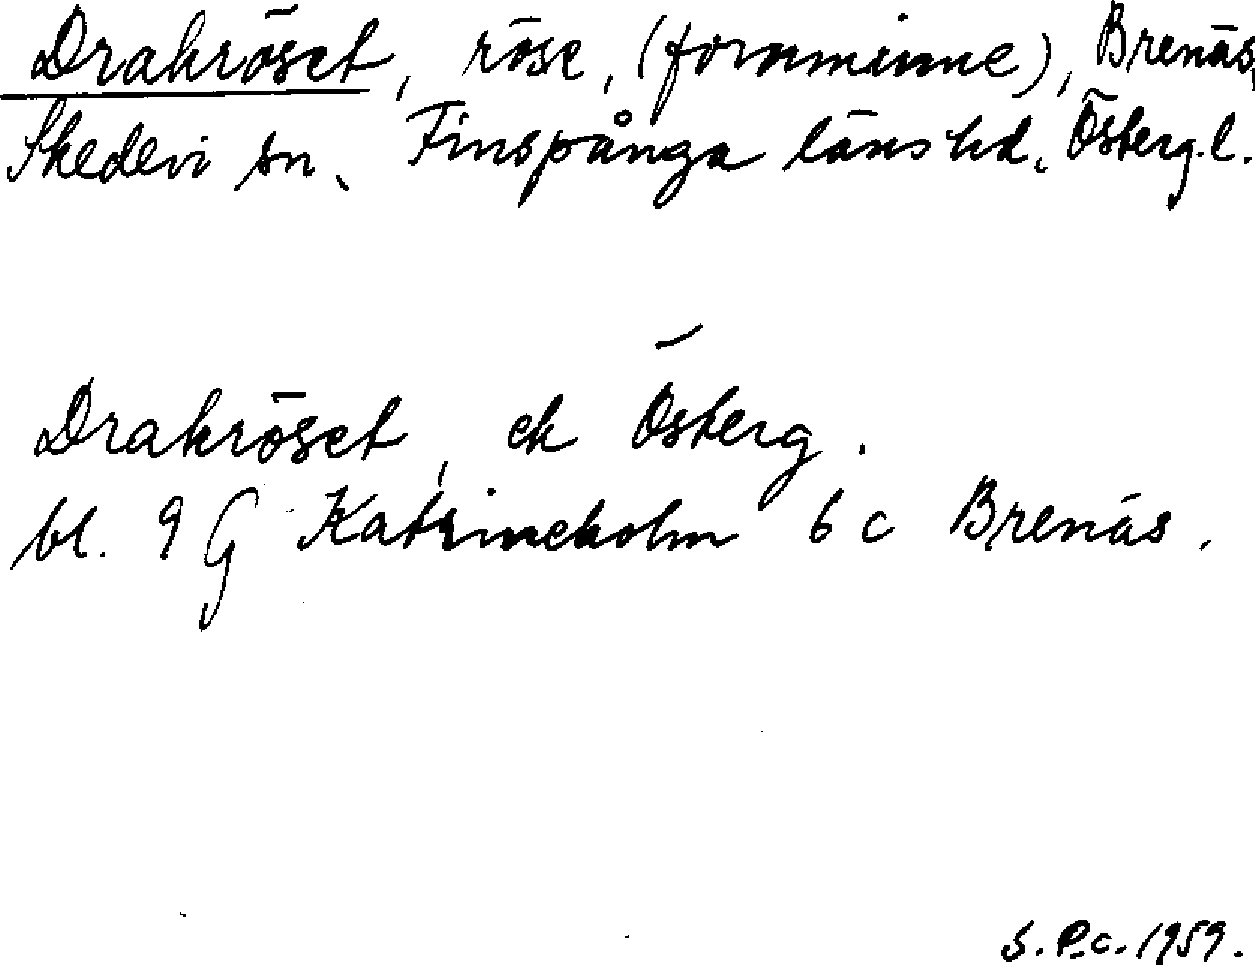 Drakröset, röse, (fornminne), Brenäs,
Skedevi sn, Finspånga läns hd, Österg.l.
Drakröset, ek Österg.
bl. 9 G Katrineholm 6 c Brenäs.
S. P.c. 1959.